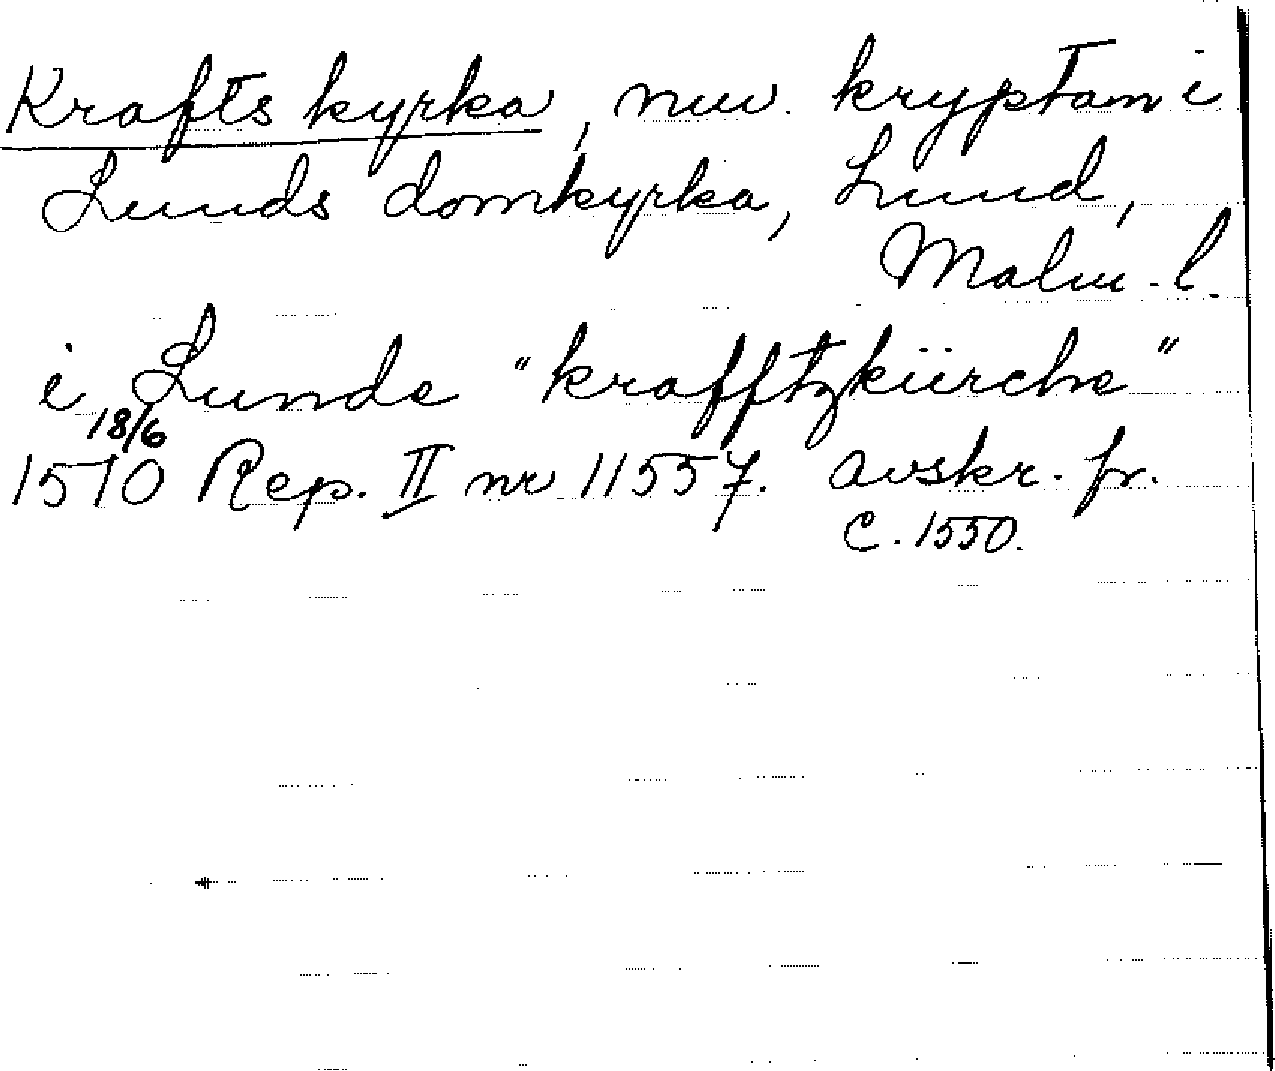 Krafts kyrka, nuv. kryptan i
Lunds domkyrka, Lund,
Malm. l.
i Lunde "krafftzkiirche"
18/6
1510 Rep. II nr 11557. avskr. fr.
c. 1550.